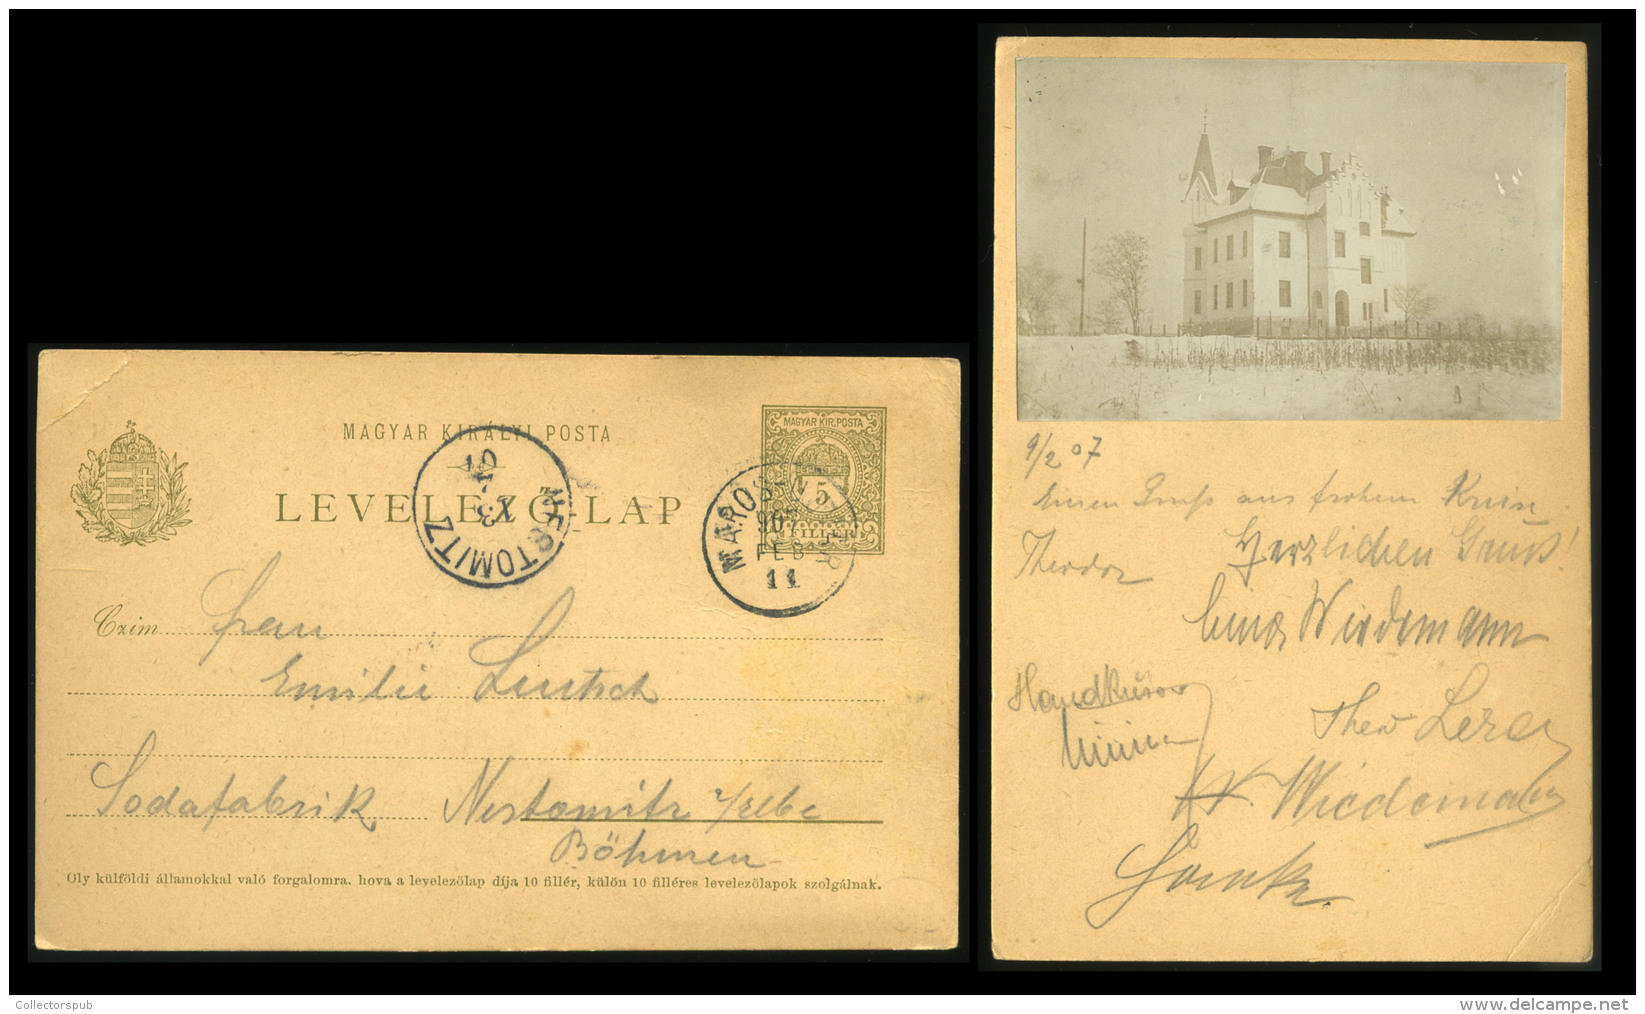 MAGYAR KIRÁLYI POSTA
LEVELEZŐ-LAP
MAGYAR KIR. POSTA
5
FILLÉR
NESTOMITZ
13
07
MAROS
907
FEB
11
Czim
Frau
Emilie Lutsch
Sodafabrik Nestomitz a/Elbe
Böhmen
Oly külföldi államokkal való forgalomra, hova a levelezőlap díja 10 fillér, külön 10 filléres levelezőlapok szolgálnak.
9/2 07
Einen Gruß aus frohem Kreise
Theodor
Herzlichen Gruss!
Wiedemann
Handküsse
Theo
W. Wiedemann
Collectorspub
www.delcampe.net